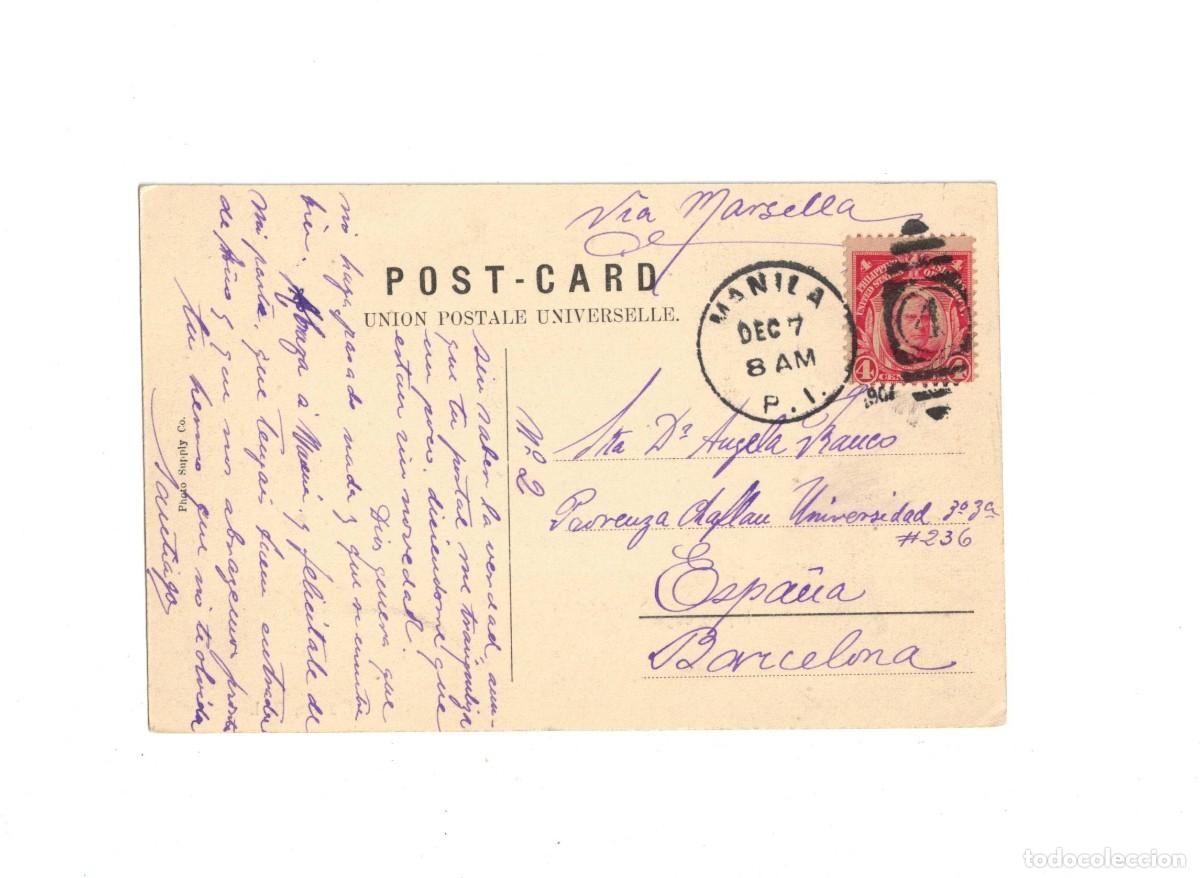 Via Marsella
POST-CARD
UNION POSTALE UNIVERSELLE.
MANILA
DEC 7
8 AM
P. I.
PHILIPPINE
UNITED STATES OF AMERICA
4 4
4 CEN
Sta Dª Angela
Universidad 3º 3ª
#236
España
Barcelona
Nº 2
sin saber la verdad, aun-
que tu postal me tranquiliza
un poco, diciendome que
estan sin novedad.
Dios quiera que
no haya pasado nada y que se encuentre
bien. Abraza á y felicitale de
mi parte, que tengais buen entrada
de Año y que nos abracemos pronto
tu hermo que no te olvida
Santiago
Photo Supply Co.
todocoleccion